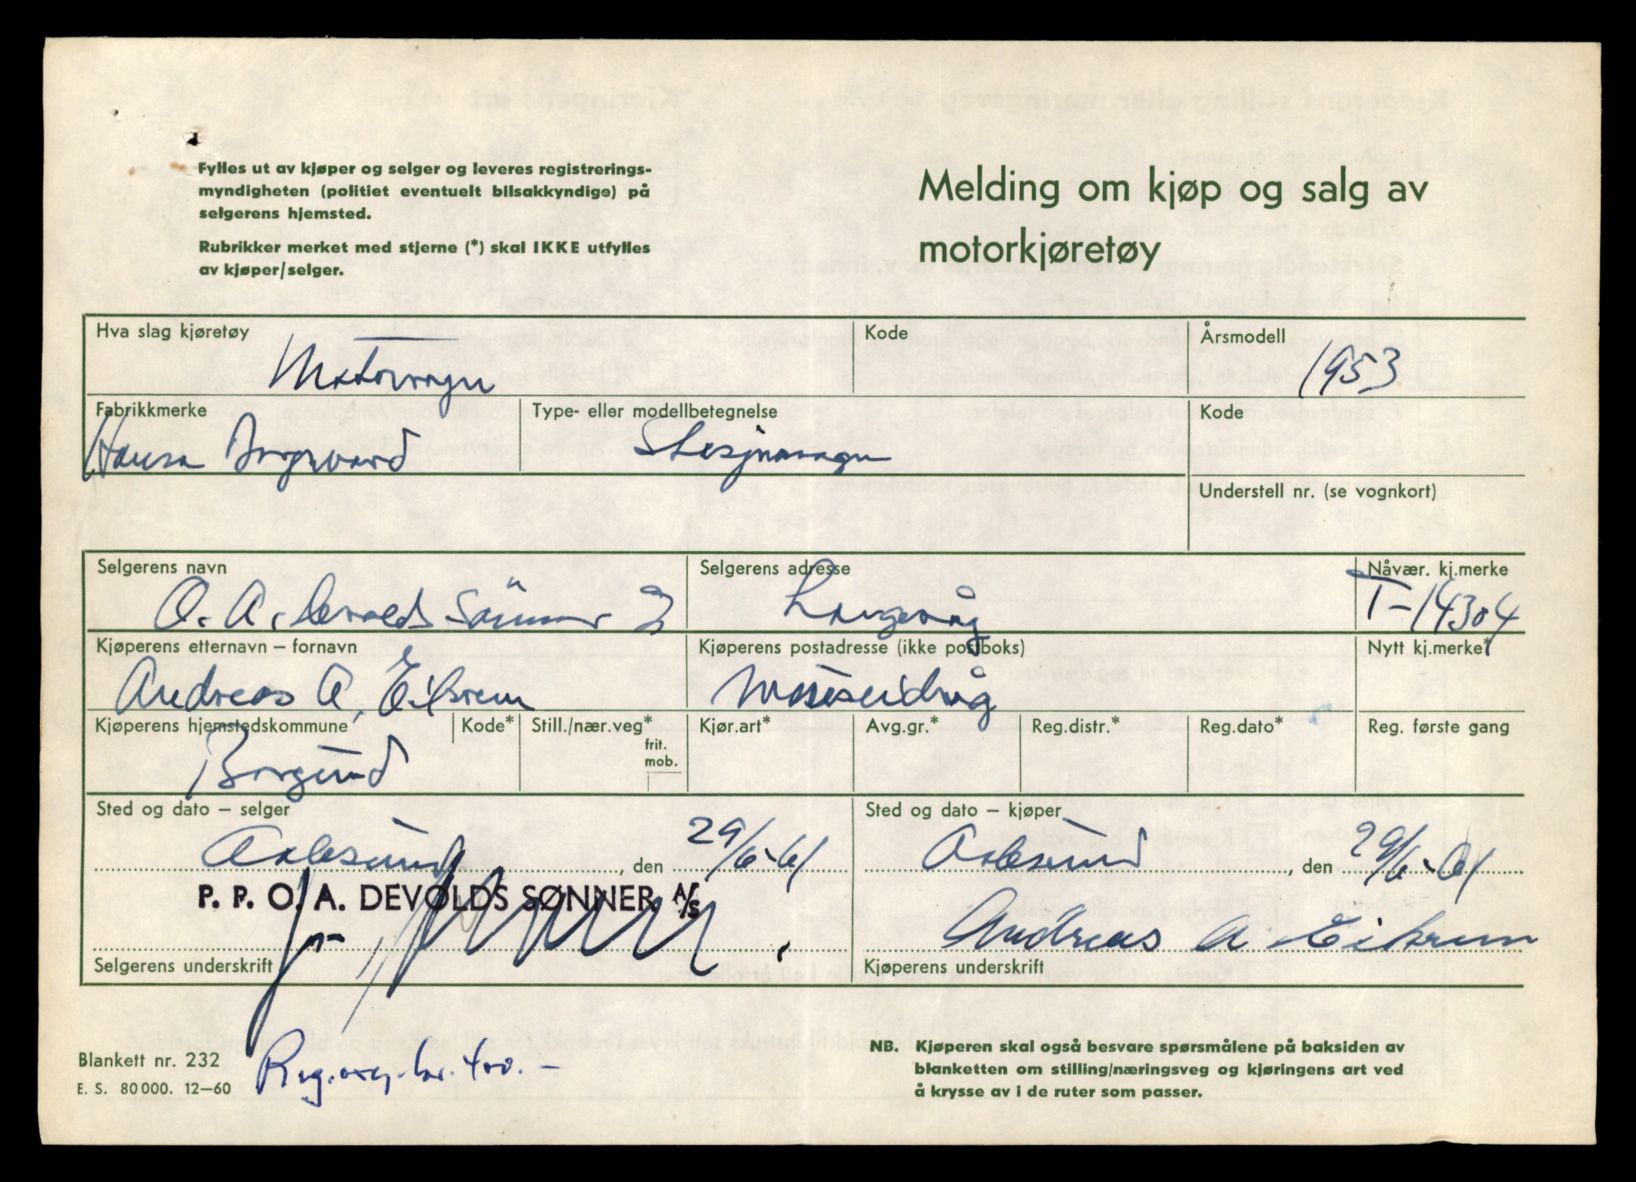 Fylles ut av kjøper og selger og leveres registrerings-
myndigheten (politiet eventuelt bilsakkyndige) på
selgerens hjemsted.
Rubrikker merket med stjerne (*) skal IKKE utfylles
av kjøper/selger.
Melding om kjøp og salg av
motorkjøretøy
Hva slag kjøretøy
Motorvogn
Kode
Årsmodell
1953
Fabrikkmerke
Hansa Borgward
Type- eller modellbetegnelse
Stasjonsvogn
Kode
Understell nr. (se vognkort)
Selgerens navn
O. A. Devolds Sönner
Selgerens adresse
Langevåg
Nåvær. kj.merke
T-14304
Kjøperens etternavn – fornavn
Andreas A. Eikrem
Kjøperens postadresse (ikke postboks)
Nytt kj.merke*
Kjøperens hjemstedskommune
Borgund
Kode*
Still./nær.veg*
frit.
mob.
Kjør.art*
Avg.gr.*
Reg.distr.*
Reg.dato*
Reg. første gang
Sted og dato – selger
Aalesund, den 29/6-61
P. P. O. A. DEVOLDS SØNNER A/S
Selgerens underskrift
Sted og dato – kjøper
Aalesund, den 29/6-61
Andreas A Eikrem
Kjøperens underskrift
Blankett nr. 232
E. S. 80000. 12–60
NB. Kjøperen skal også besvare spørsmålene på baksiden av
blanketten om stilling/næringsveg og kjøringens art ved
å krysse av i de ruter som passer.